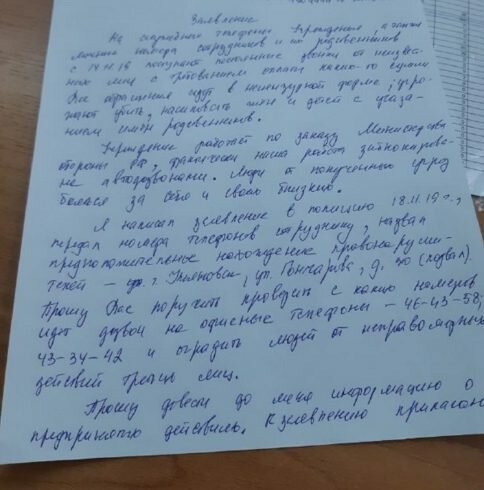 Заявление
На служебные телефоны учреждения, а также
личные номера сотрудников и их родственников
с 14.11.19 поступают постоянные звонки от неизвес-
тных лиц с требованием оплаты какой-то суммы
Все обращения идут в нецензурной форме, угро-
жают убить, насиловать жен и детей с указа-
нием имен родственников.
Учреждение работает по заказу Министерства
обороны РФ, фактически наша работа заблокирова-
на автодозвонами. Люди от полученных угроз
боятся за себя и своих близких.
Я написал заявление в полицию 18.11.19 г.,
передал номера телефонов сотруднику, назвал
предположительное нахождение правонаруши-
телей – ул. г. Ульяновск, ул. Гончарова, д. 30 (подвал).
Прошу Вас поручить проверить с каких номеров
идет дозвон на офисные телефоны – 46-43-58,
43-34-42 и оградить людей от неправомерных
действий третьих лиц.
Прошу довести до меня информацию о
предпринятых действиях. К заявлению прилагаю